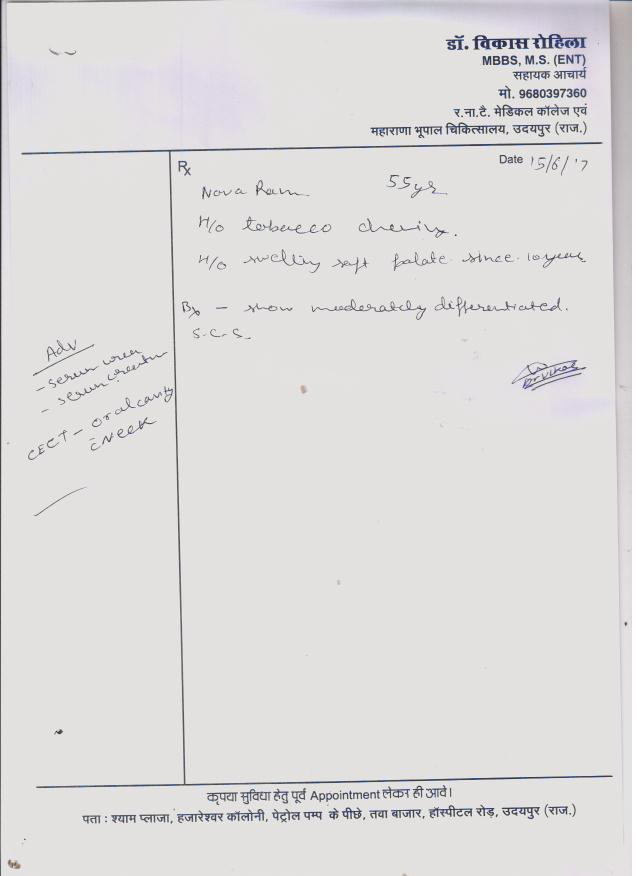 डॉ. विकास रोहिला
MBBS, M.S. (ENT)
सहायक आचार्य
मो. 9680397360
र.ना.टै. मेडिकल कॉलेज एवं
महाराणा भूपाल चिकित्सालय, उदयपुर (राज.)
Rx
Date 15/6/17
Nova Ram 55yr
H/o tobacco chewing.
H/o swelling soft palate since 10year
Bx - show moderately differentiated.
S.C.S.
Adv
- serum urea
- serum creatin
CECT - oral cavity
c Neck
Dr Vikas
कृपया सुविधा हेतु पूर्व Appointment लेकर ही आवे।
पता : श्याम प्लाजा, हजारेश्वर कॉलोनी, पेट्रोल पम्प के पीछे, तवा बाजार, हॉस्पीटल रोड़, उदयपुर (राज.)